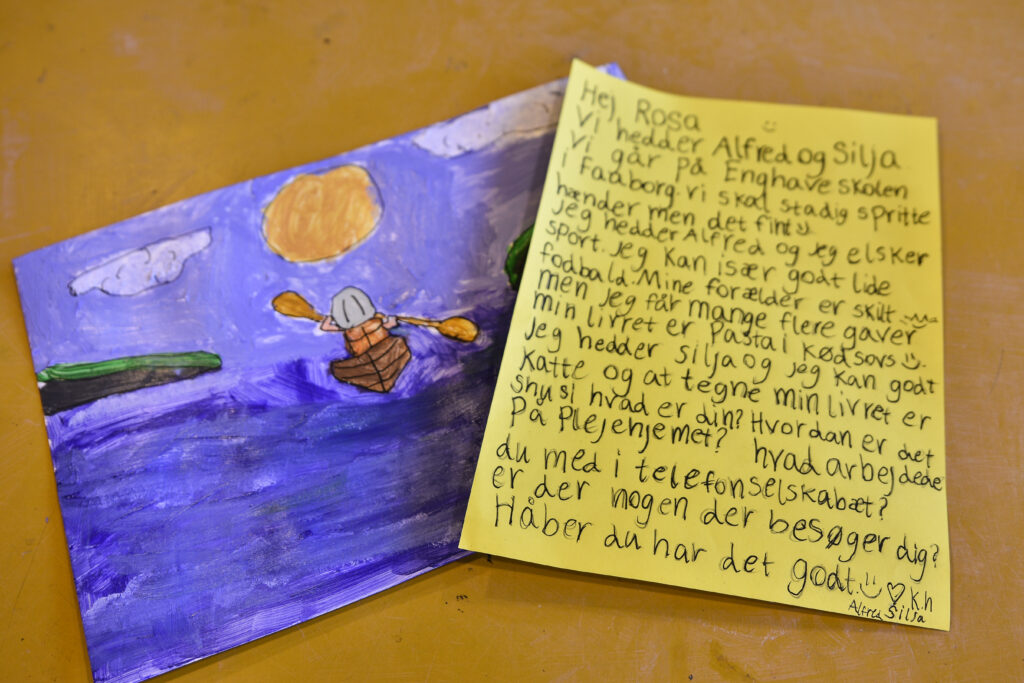 Hej Rosa
Vi hedder Alfred og Silja
Vi går på Enghaveskolen
i Faaborg. vi skal stadig spritte
hænder men det fint
Jeg hedder Alfred og jeg elsker
sport. jeg kan især godt lide
fodbald. Mine forælder er skilt
men jeg får mange flere gaver
min livret er Pasta i Kødsovs
Jeg hedder Silja og jeg kan godt
Katte og at tegne min livret er
shusi hvad er din? Hvordan er det
På Plejehjemet? hvad arbejdede
du med i telefonselskabæt?
er der nogen der besøger dig?
Håber du har det godt.
K.h
Alfred Silja